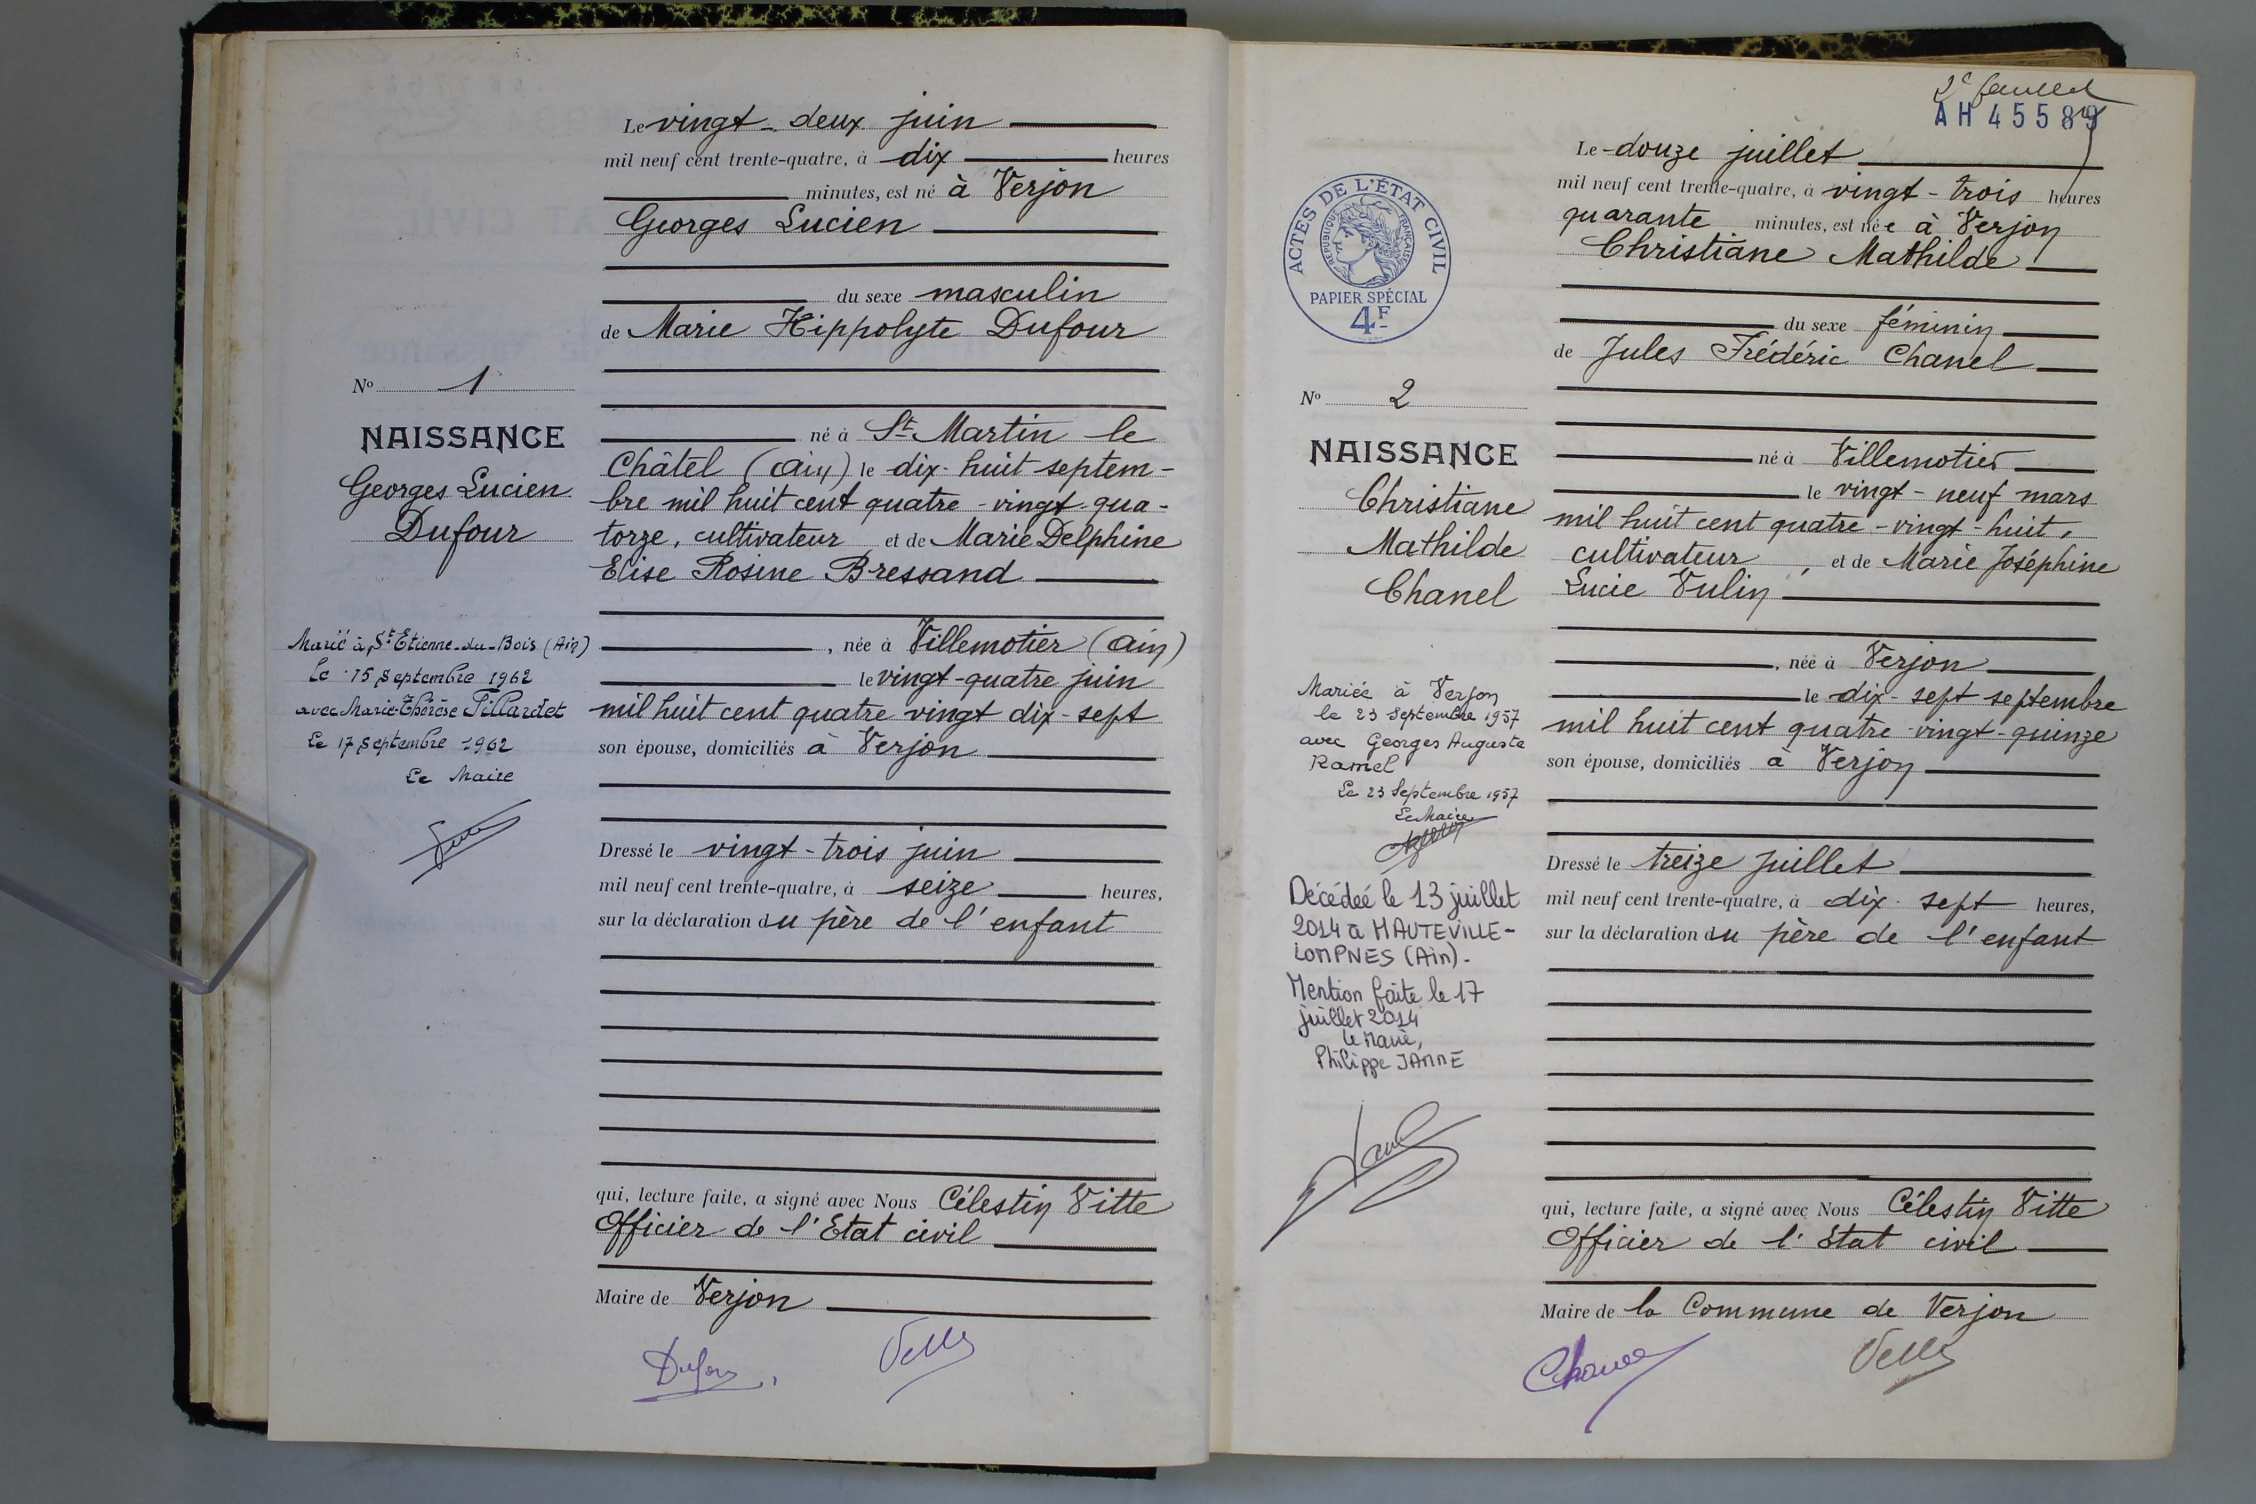 Le vingt-deux juin
mil neuf cent trente-quatre, à dix heures
minutes, est né à Verjon
Georges Lucien
du sexe masculin
de Marie Hippolyte Dufour
né à St Martin le
Châtel (Ain) le dix-huit septem-
bre mil huit cent quatre-vingt-qua-
torze, cultivateur et de Marie Delphine
Elise Rosine Bressand
, née à Villemotier (Ain)
le vingt-quatre juin
mil huit cent quatre vingt dix-sept
son épouse, domiciliés à Verjon
Dressé le vingt-trois juin
mil neuf cent trente-quatre, à seize heures,
sur la déclaration du père de l'enfant
qui, lecture faite, a signé avec Nous Célestin Vitte
Officier de l'Etat civil
Maire de Verjon
Dufour
No 1
NAISSANCE
Georges Lucien
Dufour
Marié à St Etienne-du-Bois (Ain)
Le 15 Septembre 1962
avec Marie-Thérèse Pillardet
Le 17 Septembre 1962
Le Maire
2e feuillet
AH 45589
Le douze juillet
mil neuf cent trente-quatre, à vingt-trois heures
quarante minutes, est née à Verjon
Christiane Mathilde
du sexe féminin
de Jules Frédéric Chanel
né à Villemotier
le vingt-neuf mars
mil huit cent quatre-vingt-huit,
cultivateur, et de Marie Joséphine
Lucie Vulin
, née à Verjon
le dix-sept septembre
mil huit cent quatre-vingt-quinze
son épouse, domiciliés à Verjon
Dressé le treize juillet
mil neuf cent trente-quatre, à dix-sept heures,
sur la déclaration du père de l'enfant
qui, lecture faite, a signé avec Nous Célestin Vitte
Officier de l'Etat civil
Maire de la Commune de Verjon
Chanel
ACTES DE L'ÉTAT CIVIL
RÉPUBLIQUE FRANÇAISE
PAPIER SPÉCIAL
4F
No 2
NAISSANCE
Christiane
Mathilde
Chanel
Mariée à Verjon
le 23 Septembre 1957
avec Georges Auguste
Ramel
Le 23 Septembre 1957
Le Maire
Décédée le 13 juillet
2014 à HAUTEVILLE-
LOMPNES (Ain).
Mention faite le 17
juillet 2014
Le Maire,
Philippe JANNE